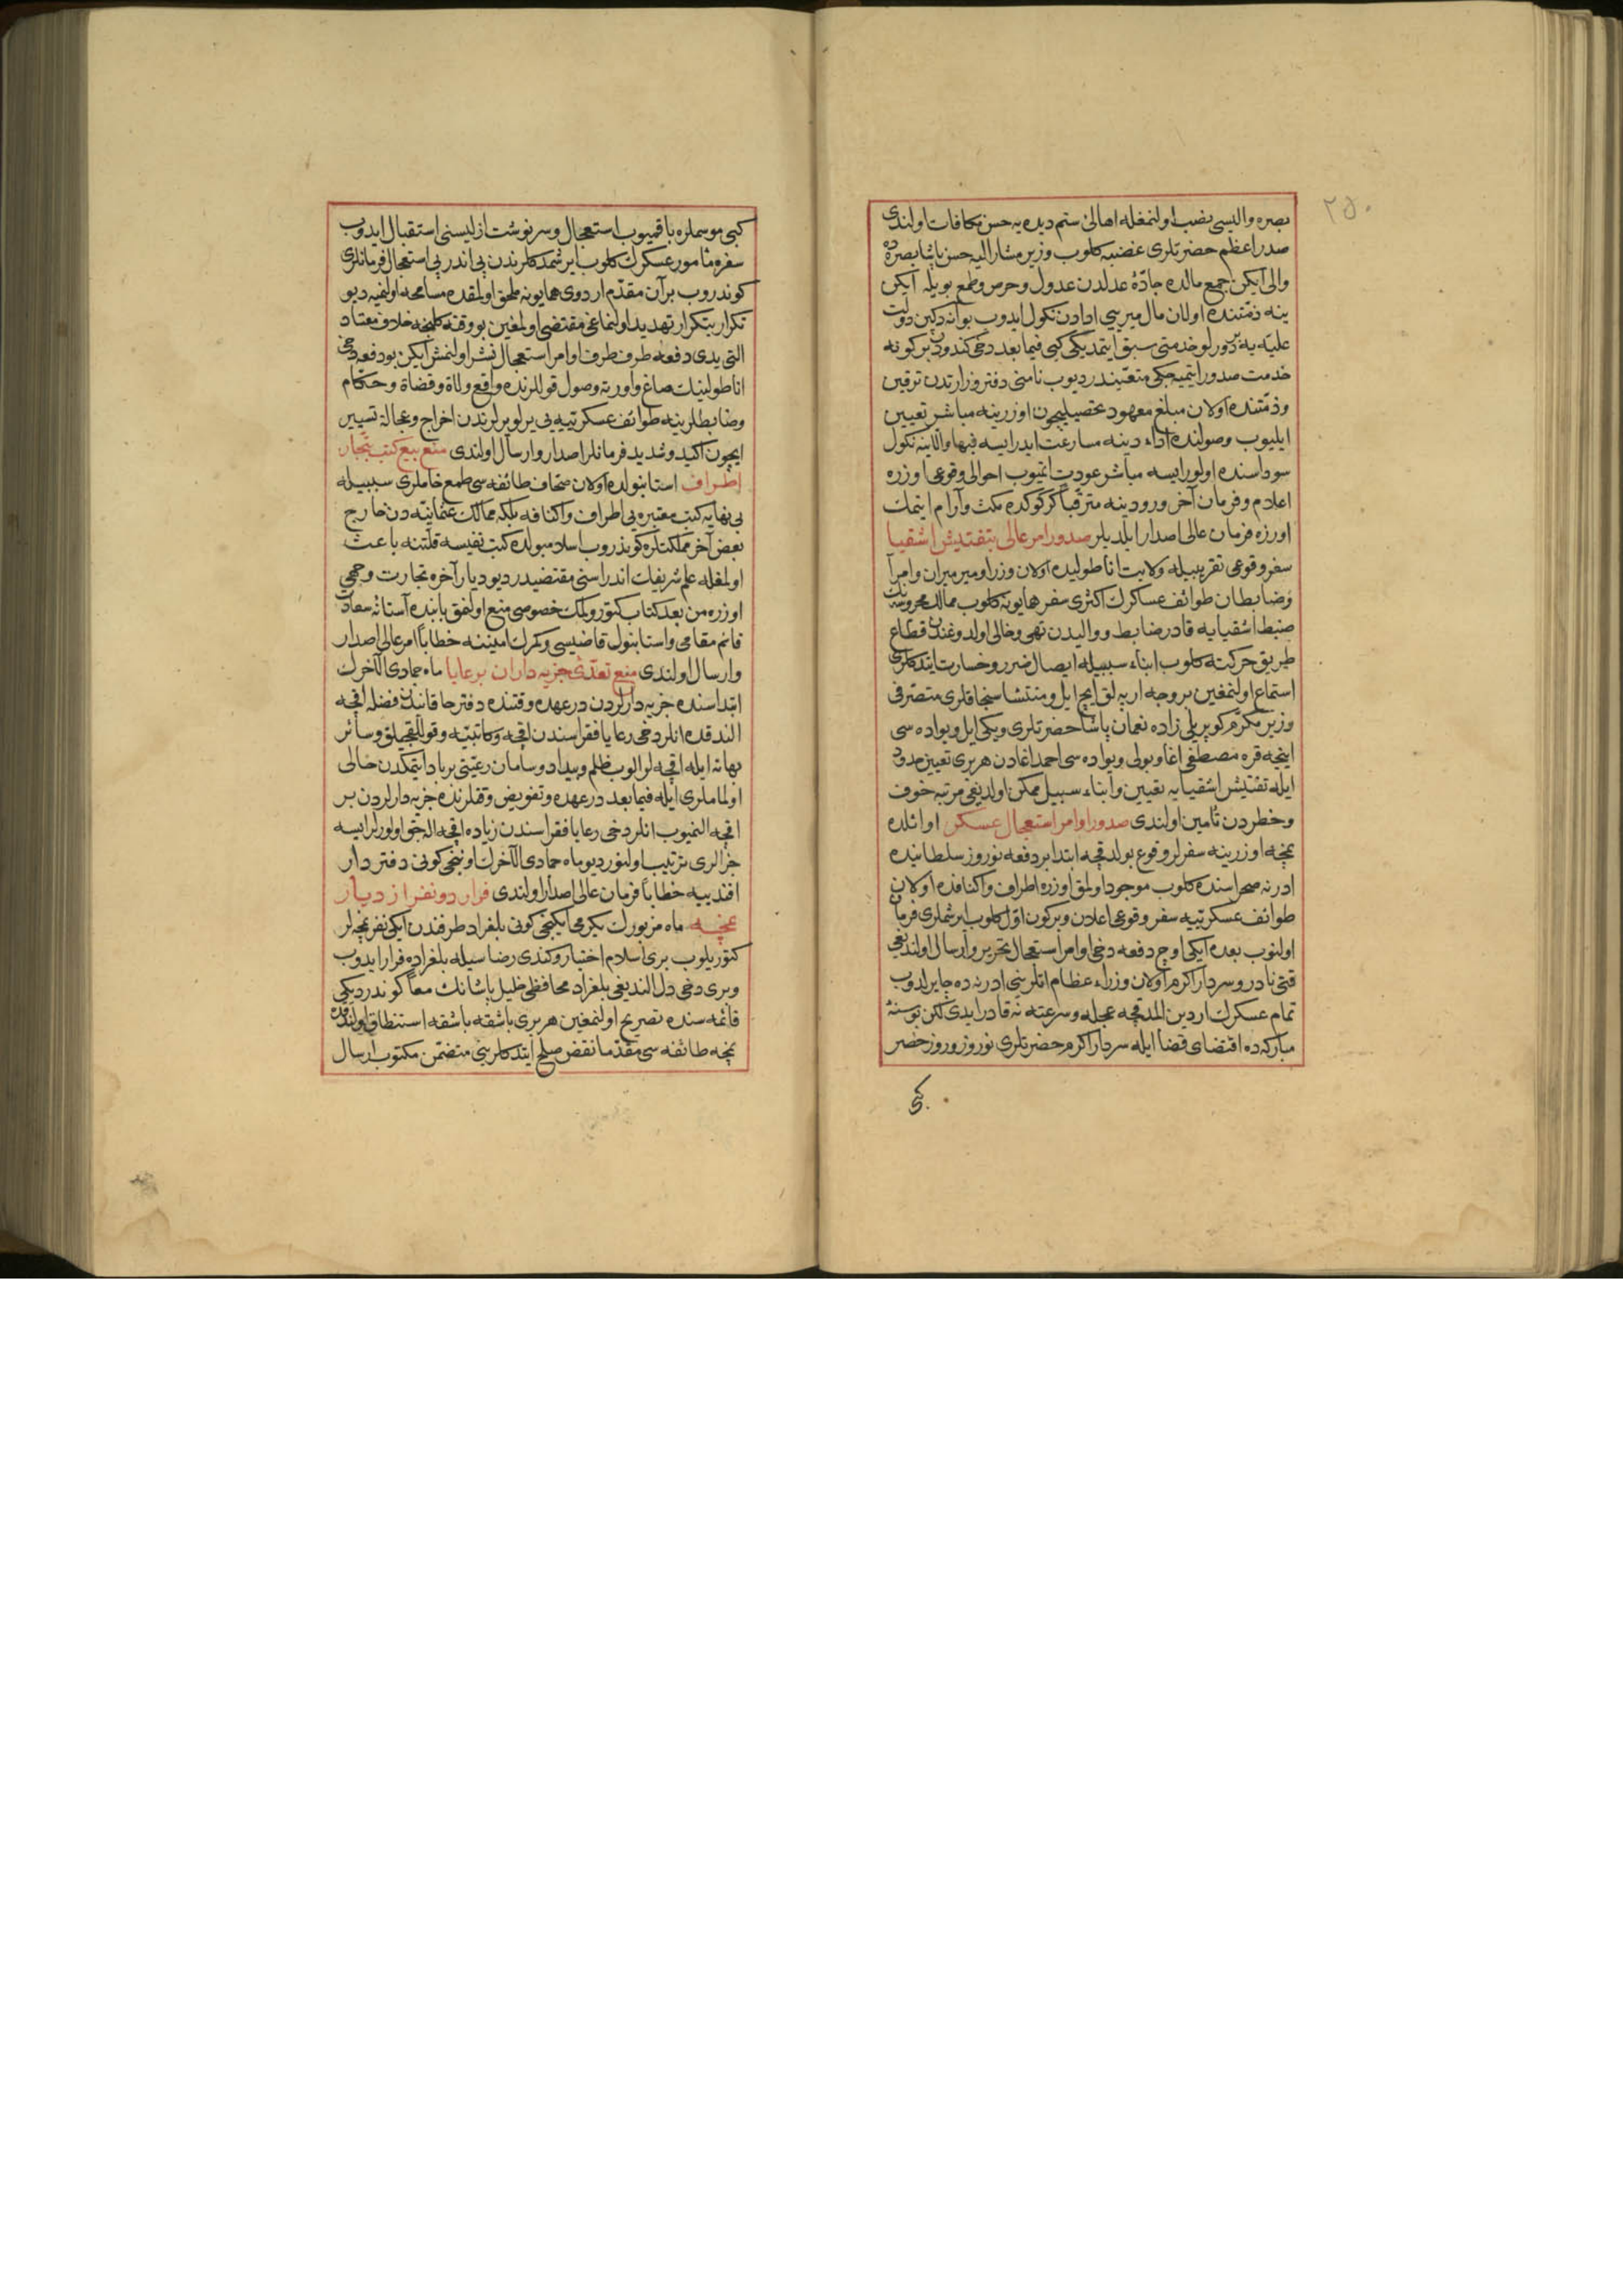 ٢٥٠
بصره والیسی نصب اولنمغله اهالئ ستم دیده یه حسن مکافات اولندی
صدر اعظم حضرتلری غضبیه کلوب وزیر مشار الیه حسن پاشا بصره ده
والی ایکن جمع مالده جادۀ عدلدن عدول وحرص وطمع بویله ایکن
ینه ذمتنده اولان مال میریی ادادن نکول ایدوب بوانه دکین دولت
علیه یه بر دورلو خدمتی سبق ایتمدیکی کبی فیما بعد دخی کندودن بر کونه
خدمت صدور ایتمیه جکی متعیندر دیوب نامنی دفتر وزارتدن ترقین
وذمتنده اولان مبلغ معهود تحصیلیچون اوزرینه مباشر تعیین
ایلیوب وصولنده اداء دینه مسارعت ایدر ایسه فبها والا ینه نکول
سوداسنده اولور ایسه مباشر عودت ایتمیوب احوالی وقوعی اوزره
اعلام وفرمان آخر ورودینه مترقبا کرکوکده مکث وآرام ایتمک
اوزره فرمان عالی اصدار ایلدیلر صدور امر عالی بتفتیش اشقیا
سفر وقوعی تقریبیله ولایت اناطولیده اولان وزرا ومیر میران وامرا
وضابطان طوائف عساکرک اکثری سفر همایونه کلوب ممالک محروسه نک
ضبط اشقیایه قادر ضابط ووالیدن تهی وخالی اولدوغندن قطاع
طریق حرکته کلوب ابناء سبیله ایصال ضرر وخسارت ایتدکلری
استماع اولنمغین بر وجه ارپه لق ایچ ایل ومنتشا سنجاقلری متصرفی
وزیر مکرم کوپریلی زاده نعمان پاشا حضرتلری ویکی ایل ویواده سی
اینجه قره مصطفی اغا وبولی ویواده سی احمد اغادن هر بری تعیین حدود
ایله تفتیش اشقیایه تعیین وابناء سبیل ممکن اولدیغی مرتبه خوف
وخطردن تأمین اولندی صدور اوامر استعجال عسکر اوائلده
نمچه اوزرینه سفرلر وقوع بولدقچه ابتدا بر دفعه نوروز سلطانیده
ادرنه صحراسنده کلوب موجود اولمق اوزره اطراف واکنافده اولان
طوائف عسکرییه سفر وقوعی اعلان وبر کون اول کلوب ایرشملری فرمان
اولنوب بعده ایکی اوچ دفعه دخی اوامر استعجال تحریر وارسال اولندیغی
قتی نادر وسردار اکرم اولان وزراء عظام اتلرینی ادرنه ده چایرلدوب
تمام عسکرک اردین الدقچه عجله وسرعته نه قادر ایدی لکن بو سنۀ
مبارکه ده اقتضای قضا ایله سردار اکرم حضرتلری نوروز وروز خضر
کبی
کبی موسملره باقمیوب استعجال وسرنوشت ازلیسنی استقبال ایدوب
سفره مأمور عسکرک کلوب ایرشمدکلرندن پی اندر پی استعجال فرمانلری
کوندروب بر آن مقدم اردوی همایونه ملحق اولمقده مسامحه اولنمیه دیو
تکرار بتکرار تهدید اولنماغی مقتضی اولمغین بو وقته کلنجه خلاف معتاد
التی یدی دفعه طرف طرف اوامر استعجال نشر اولنمش ایکن بو دفعه دخی
اناطولینک صاغ واورته وصول قوللرنده واقع ولاة وقضاة وحکام
وضابطلرینه طوائف عسکرییه یی یرلو یرلرندن اخراج وعجالة تسییر
ایچون اکید وشدید فرمانلر اصدار وارسال اولندی منع بیع کتب بتجار
اطراف استانبولده اولان صحاف طائفه سی طمع خاملری سببیله
بی نهایه کتب معتبره یی اطراف واکنافه بلکه ممالک عثمانیه دن خارج
بعض آخر مملکتلره کوندروب اسلامبولده کتب نفیسه قلتنه باعث
اولمغله علم شریفک اندراسنی مقتضیدر دیو دیار آخره تجارت وجهی
اوزره من بعد کتاب کتورولمک خصوصی منع اولنمق بابنده آستانۀ سعادت
قائم مقامی واستانبول قاضیسی وکمرک امیننه خطابا امر عالی اصدار
وارسال اولندی منع تعدئ جزیه داران بر رعایا ماه جمادی الآخرک
ابتداسنده جزیه دارلردن در عهده وقتنده دفتر خاقانیدن فضله اقچه
الندقده انلر دخی رعایا فقراسندن اقچه وکاتبیه وقولاغچیلق وسائر
بهانه ایله اقچه لر الوب ظلم وبیداد وسامان رعیتی برباد ایتمکدن خالی
اولماملری ایله فیما بعد در عهده وتفویض وقتلرنده جزیه دارلردن بر
اقچه النمیوب انلر دخی رعایا فقراسندن زیاده اقچه اله جق اولورلر ایسه
جزالری ترتیب اولنور دیو ماه جمادی الآخرک اوننجی کونی دفتردار
افندییه خطابا فرمان عالی اصدار اولندی فرار دو نفر از دیار
نمچه ماه مزبورک یکرمی ایکنجی کونی بلغراد طرفندن ایکی نفر نمچه لر
کتوریلوب بری اسلام اختیار وکندی رضاسیله بلغراده فرار ایدوب
وبری دخی دل الندیغی بلغراد محافظی خلیل پاشانک معا کوندردیکی
قائمه سنده تصریح اولنمغین هر بری باشقه باشقه استنطاق اولندقده
نمچه طائفه سی مقدما نقض صلح ایتدکلرینی متضمن مکتوب ارسال